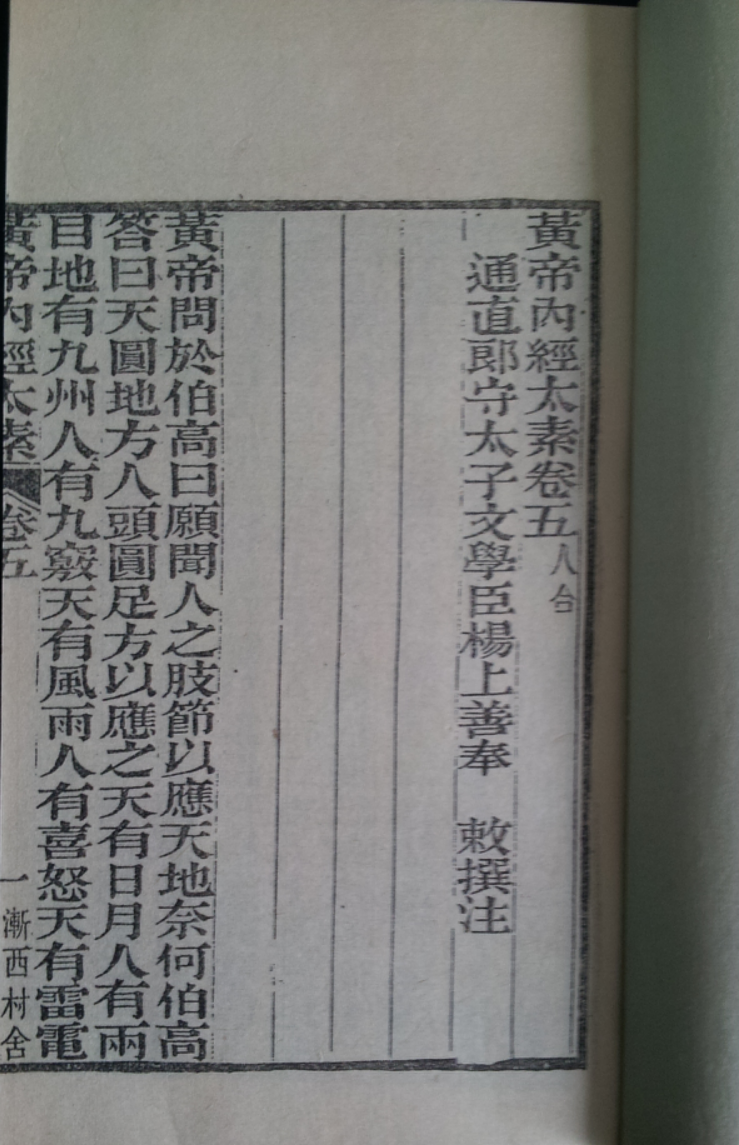 黃帝內經太素卷五 人合
通直郎守太子文學臣楊上善奉 敕撰注
黃帝問於伯高曰願聞人之肢節以應天地奈何伯高
答曰天圓地方人頭圓足方以應之天有日月人有兩
目地有九州人有九竅天有風雨人有喜怒天有雷電
黃帝內經太素 卷五 一 漸西村舍